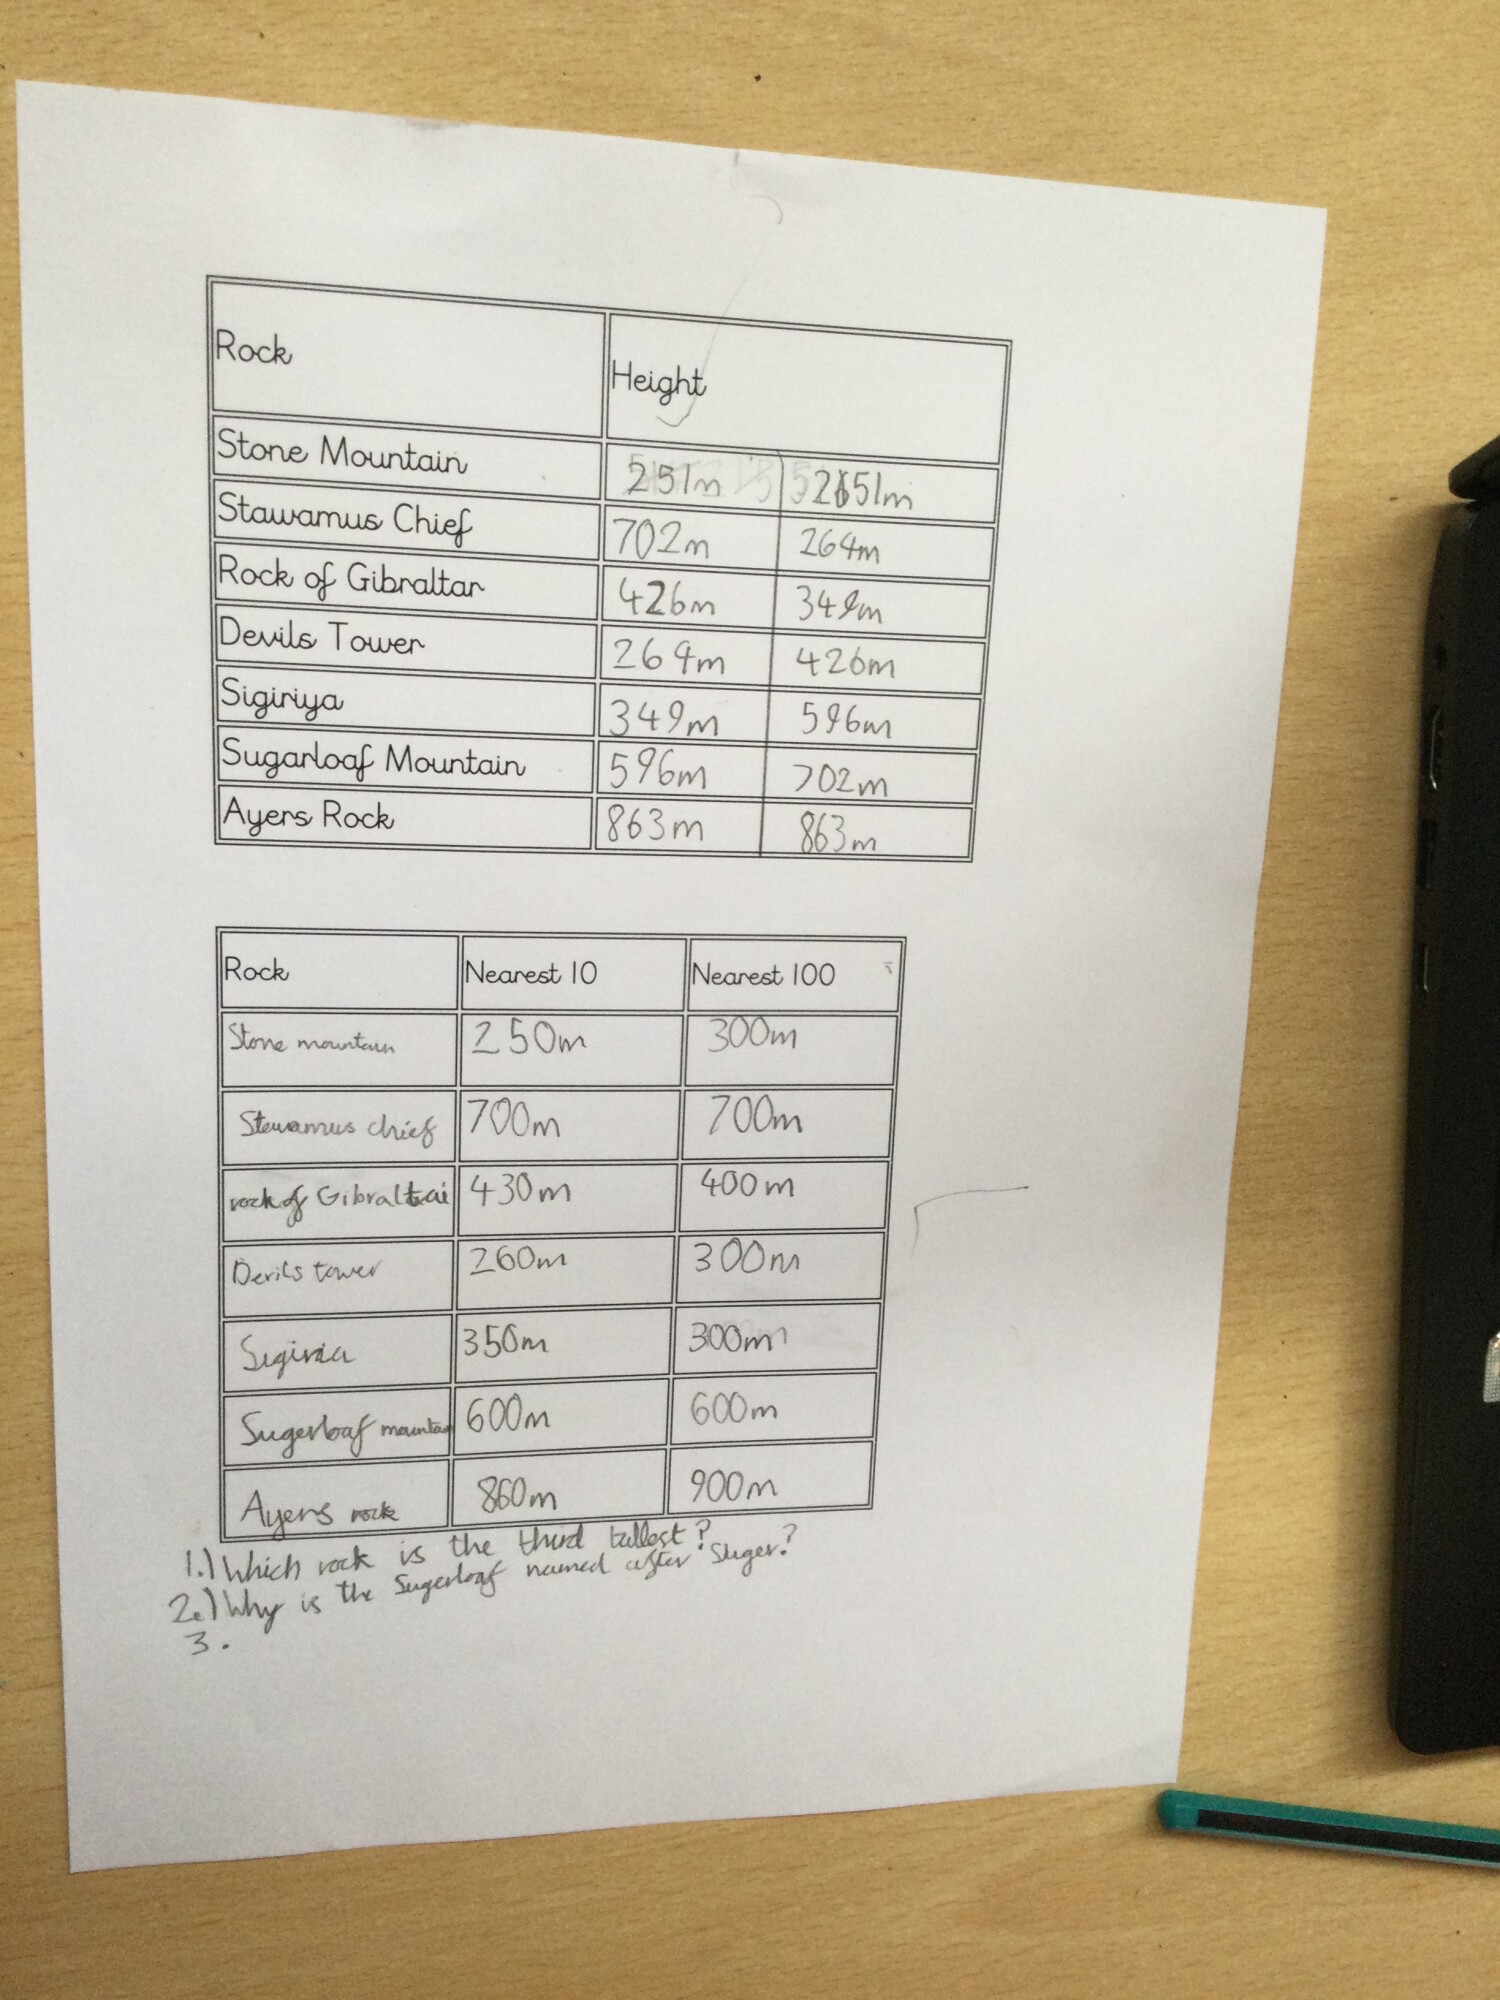 Rock Height
Stone Mountain 251m 251m
Stawamus Chief 702m 264m
Rock of Gibraltar 426m 349m
Devils Tower 264m 426m
Sigiriya 349m 596m
Sugarloaf Mountain 596m 702m
Ayers Rock 863m 863m
Rock Nearest 10 Nearest 100
Stone mountain 250m 300m
Stewamus chief 700m 700m
rock of Gibraltai 430m 400m
Devils tower 260m 300m
Sigiria 350m 300m
Sugerloaf mountain 600m 600m
Ayers rock 860m 900m
1.) Which rock is the third tallest?
2.) Why is the Sugerloaf named after Suger?
3.